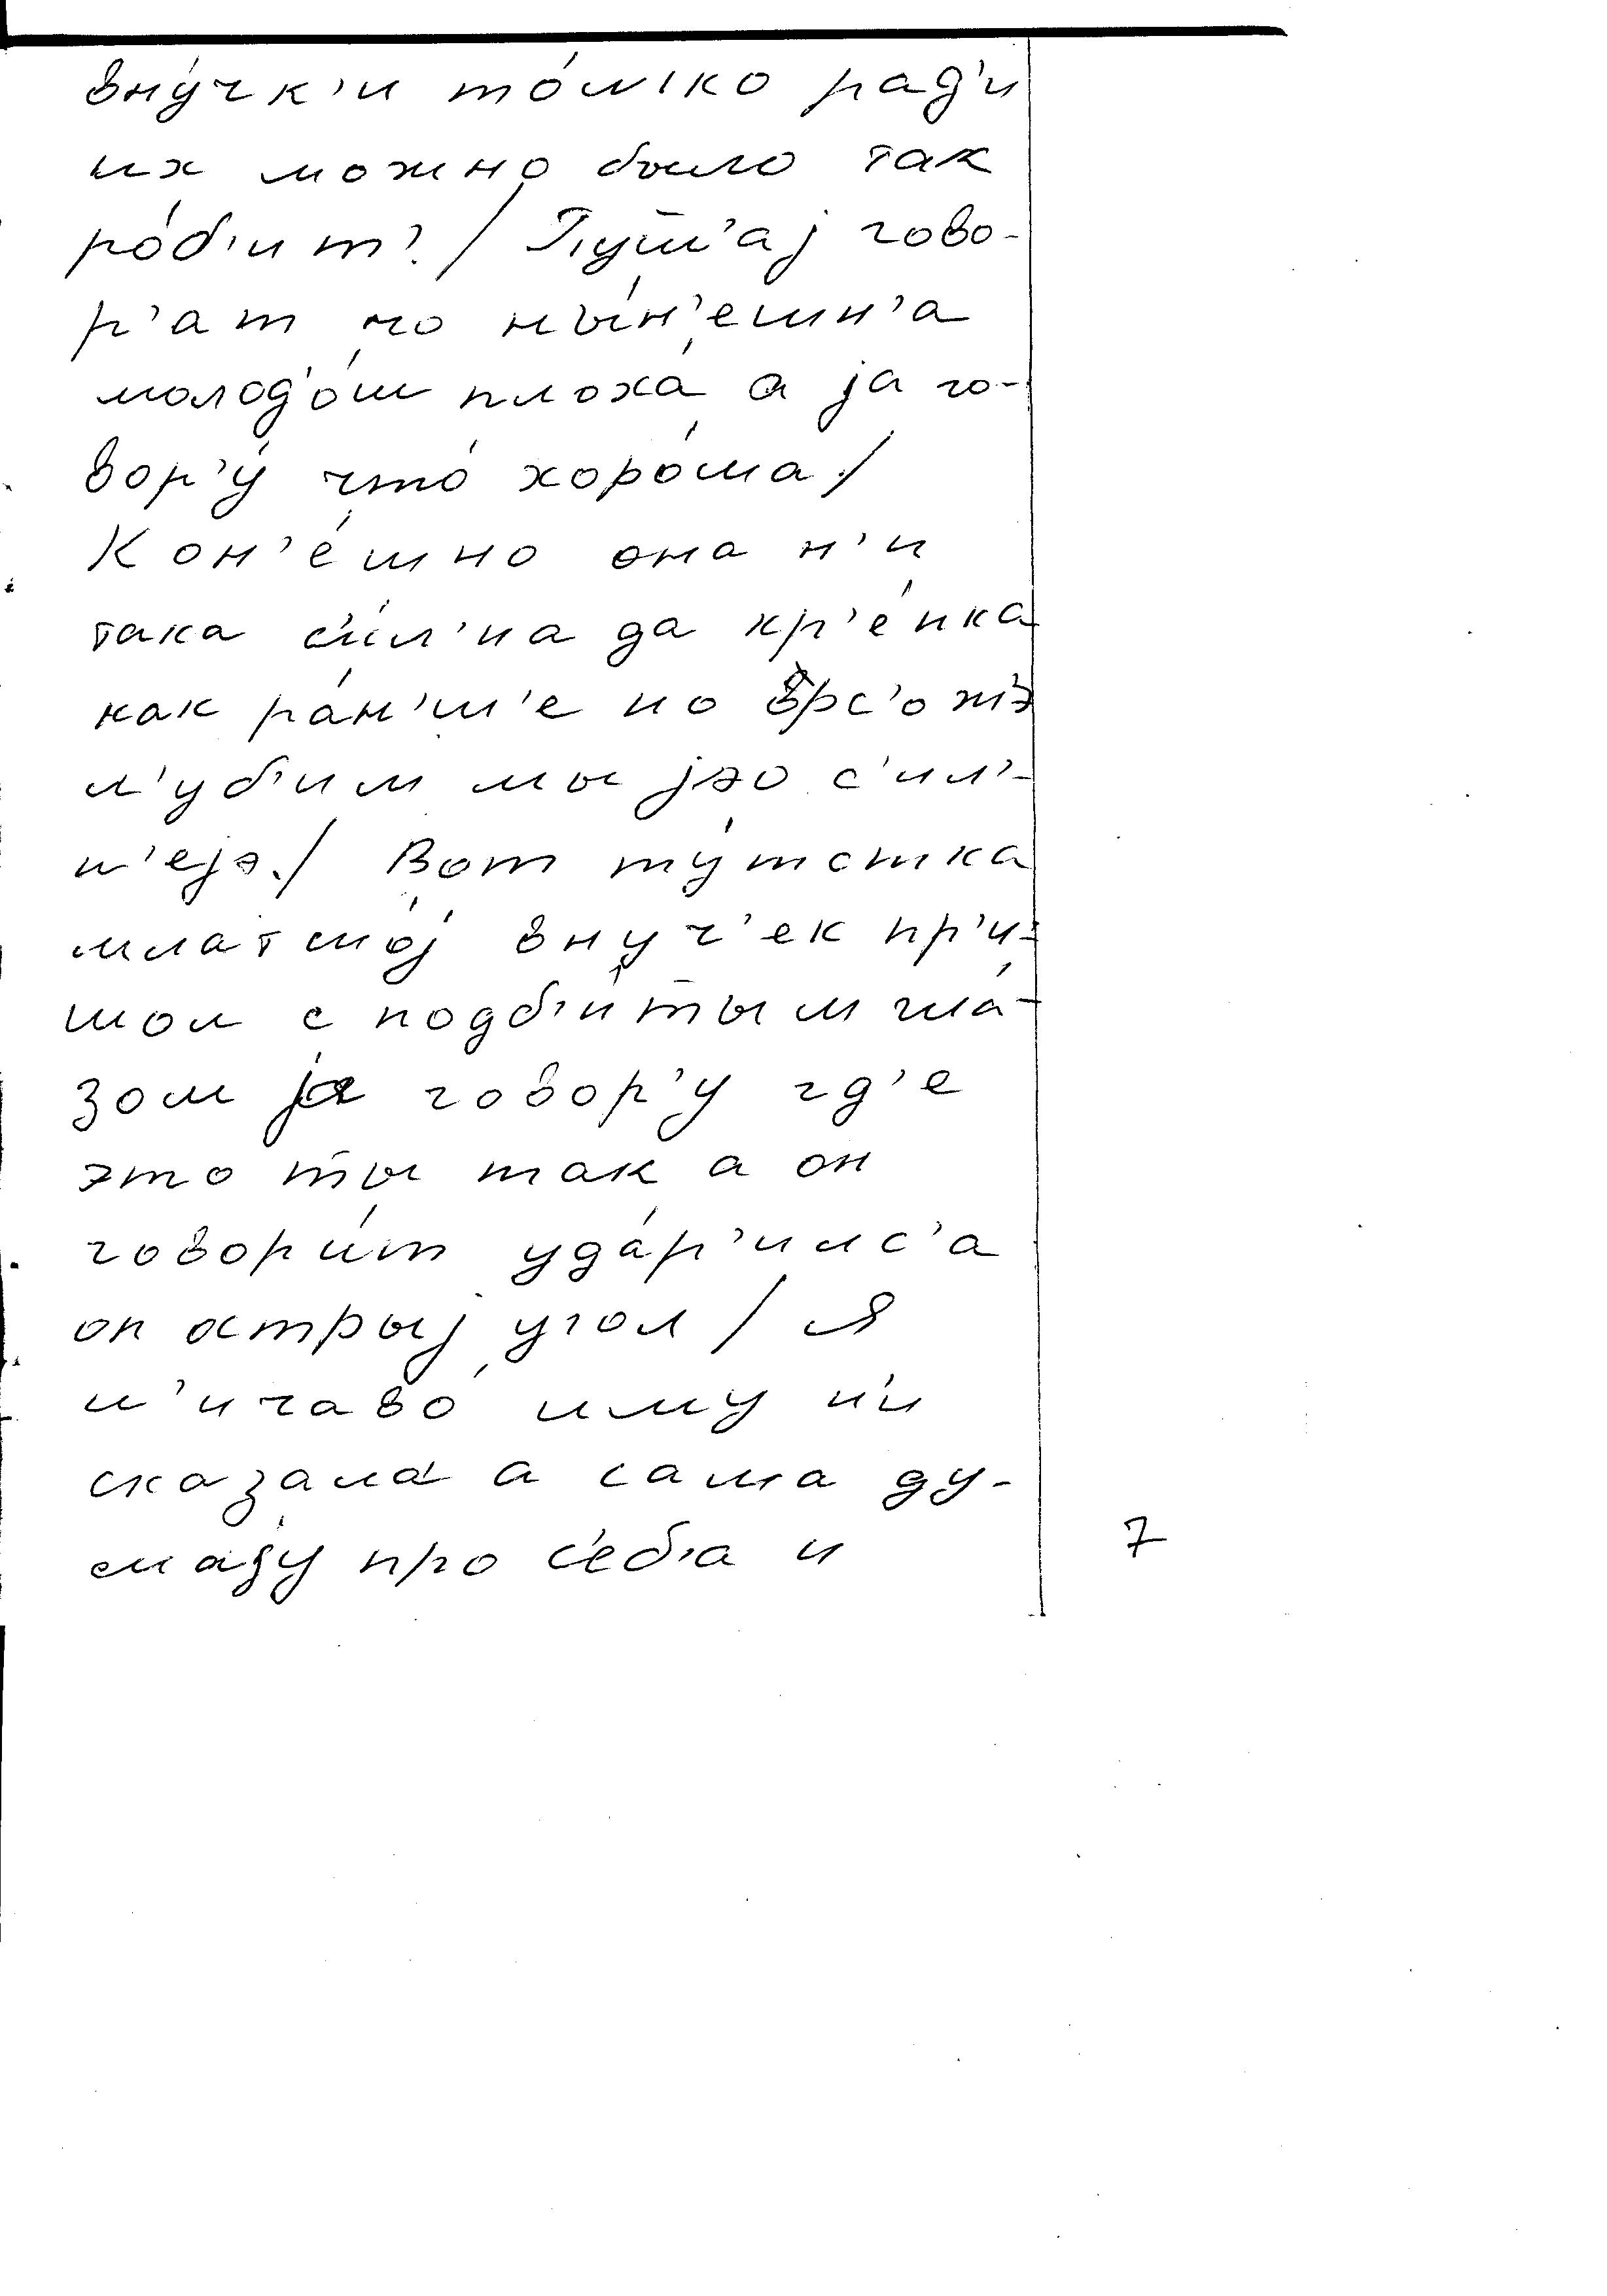 вну́чк'и то́л'ко рад'и
их можно было так
ро́б'ит'./ Пушш'ај гово-
р'ат чо ны́н'ешн'а
молод'о́ш плоха́ а ја го-
вор'у́ что́ хоро́ша./
Кон'е́шно она н'и
така с'ил'на да кр'е́пка
как ра́н'ш'е но врс'о жэ
л'уб'им мы јэо с'ил'-
н'ејэ./ Вот ту́тотка
млатшо́ј вну́ч'ек пр'и-
шол с подб'и́тым гла́-
зом ја говор'у гд'е
это ты так а он
говори́т уда́р'илс'а
оп острыј угол / Я
н'ичаво́ иму н'и
сказала а сама ду-
мају про с'еб'а и
7